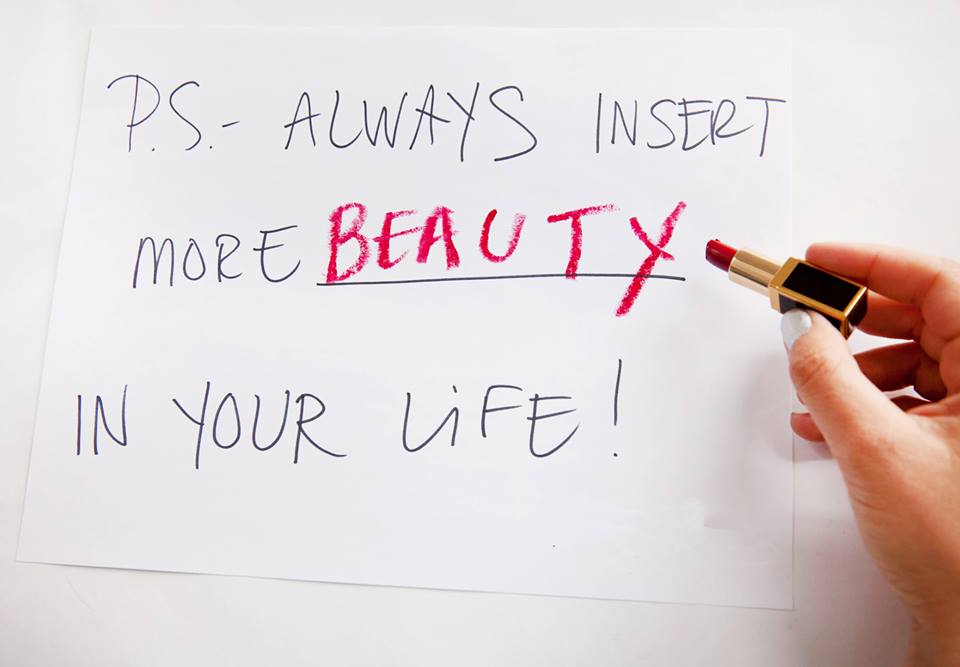 P.S.- ALWAYS INSERT
MORE BEAUTY
IN YOUR LiFE!